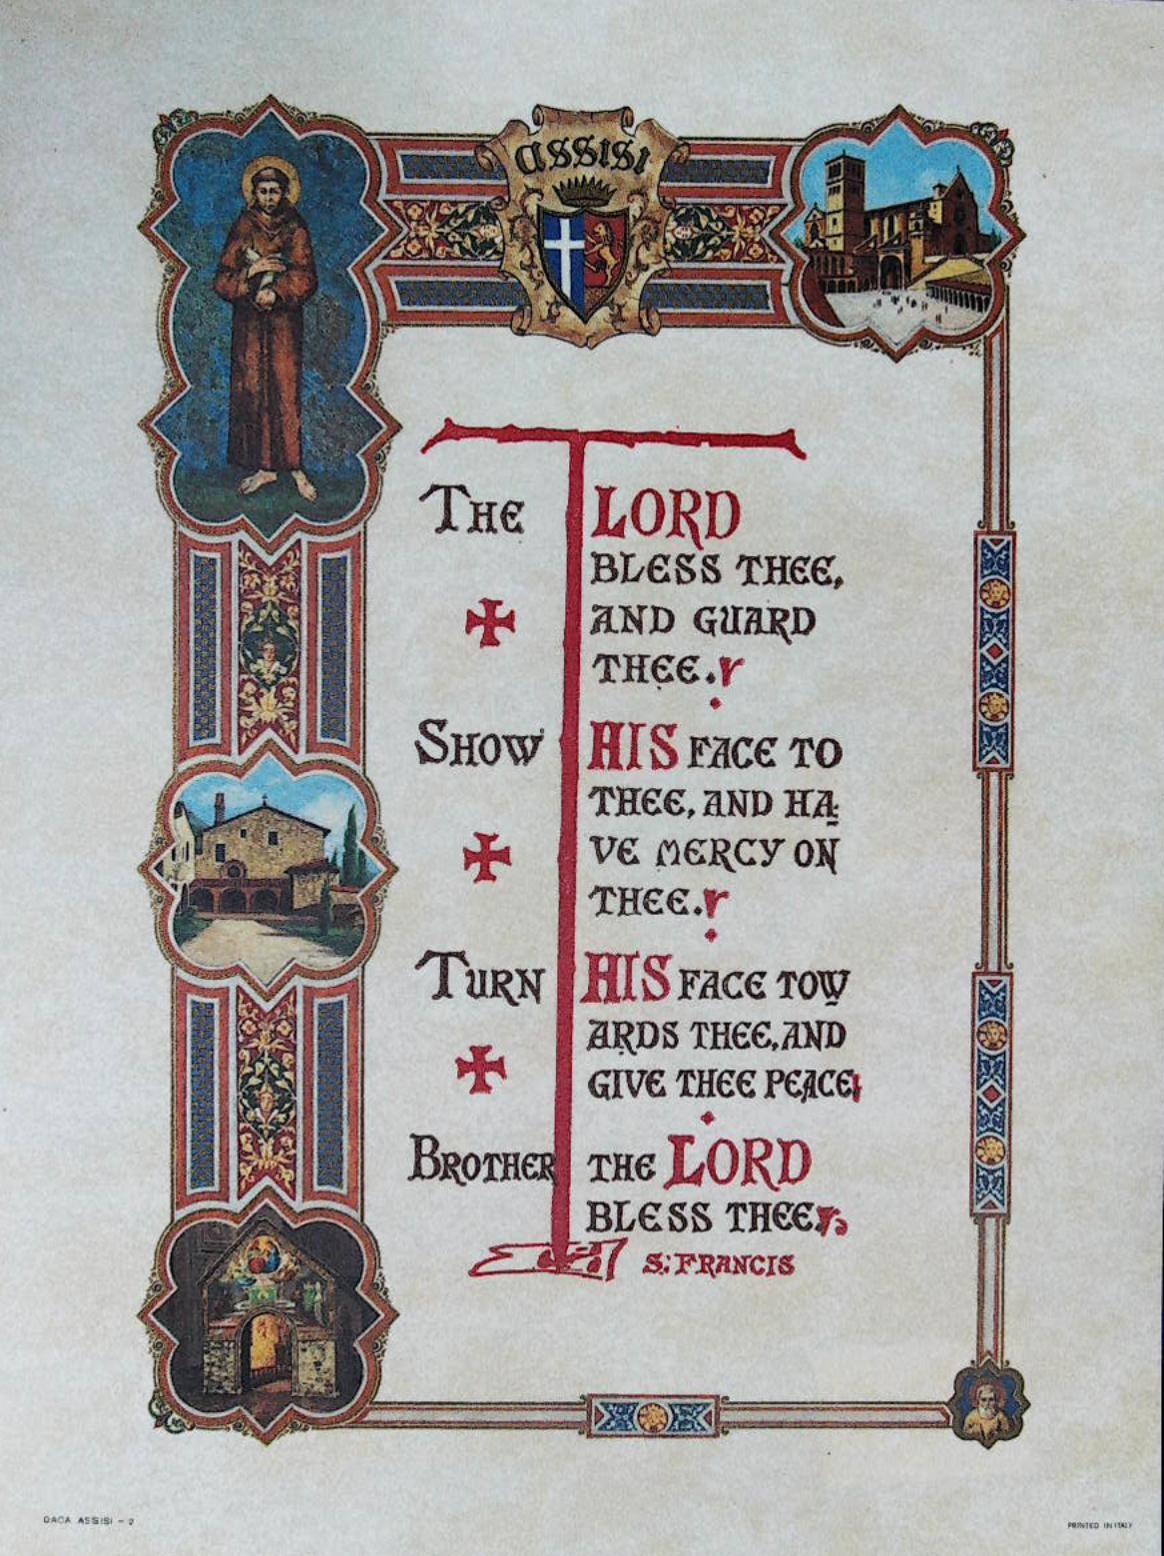 ASSISI
THE LORD
BLESS THEE,
AND GUARD
THEE.
SHOW HIS FACE TO
THEE, AND HA-
VE MERCY ON
THEE.
TURN HIS FACE TOW-
ARDS THEE, AND
GIVE THEE PEACE
BROTHER THE LORD
BLESS THEE
S: FRANCIS
DACA ASSISI - 2
PRINTED IN ITALY